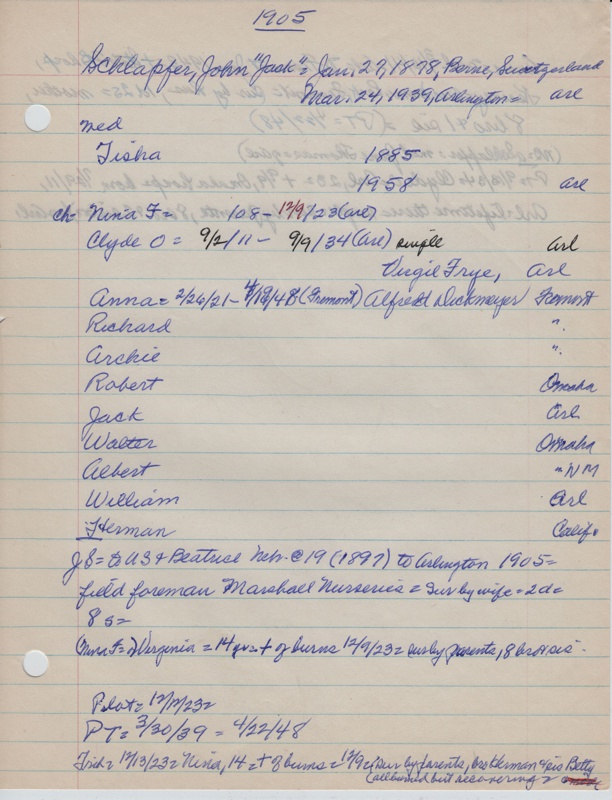 1905
Schlapfer, John "Jack" = Jan. 27, 1878, Berne, Switzerland
Mar. 24, 1939, Arlington = arl
med
Tisha 1885
1958 arl
ch = Nina F = 108 - 12/9/23 (arl)
Clyde O = 9/2/11 - 9/9/34 (arl) single Arl
Virgil Frye, Arl
Anna = 2/26/21 - 4/18/48 (Fremont) Alfred Dickmeyer Fremont
Richard ".
Archie ".
Robert Omaha
Jack Arl
Walter Omaha
Albert " NM
William Arl
Herman Calif.
JS = to US & Beatrice Neb. @ 19 (1897) to Arlington 1905 =
field foreman Marshall Nurseries = sur by wife = 2d =
8 s =
(Nina F = ) Virginia = 14 yrs = + of burns 12/9/23 = sur by parents, 8 bro + sis -
Pilot = 12/ /23 =
PT = 3/30/39 = 4/22/48
Trib = 12/13/23 = Nina, 14 = + of burns = 12/9 = sur by parents, bro Herman & sis Betty
(all burned but recovering =